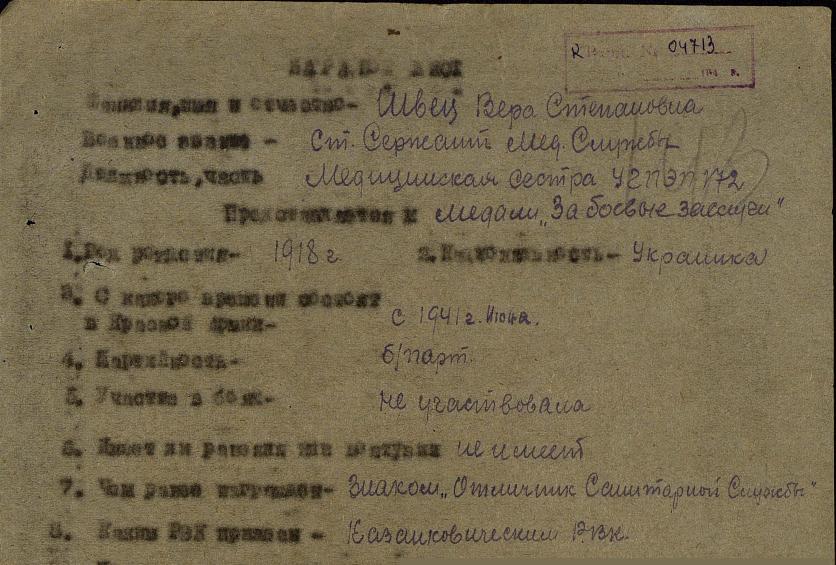 НАГРАДНОЙ ЛИСТ
№ 04713
Фамилия, имя и отчество- Швец Вера Степановна
Военное звание - Ст. Сержант Мед. Службы
Должность, часть Медицинская сестра УГПЭП 172
Представляется к медали „За боевые заслуги"
1. Год рождения- 1918 г 2. Национальность- Украинка
3. С какого времени состоит
в Красной Армии- с 1941 г. Июня.
4. Партийность- б/парт.
5. Участие в боях- не участвовала
6. Имеет ли ранения или контузии не имеет
7. Чем ранее награжден- Знаком „Отличник Санитарной Службы"
8. Каким РВК призван - РВК.